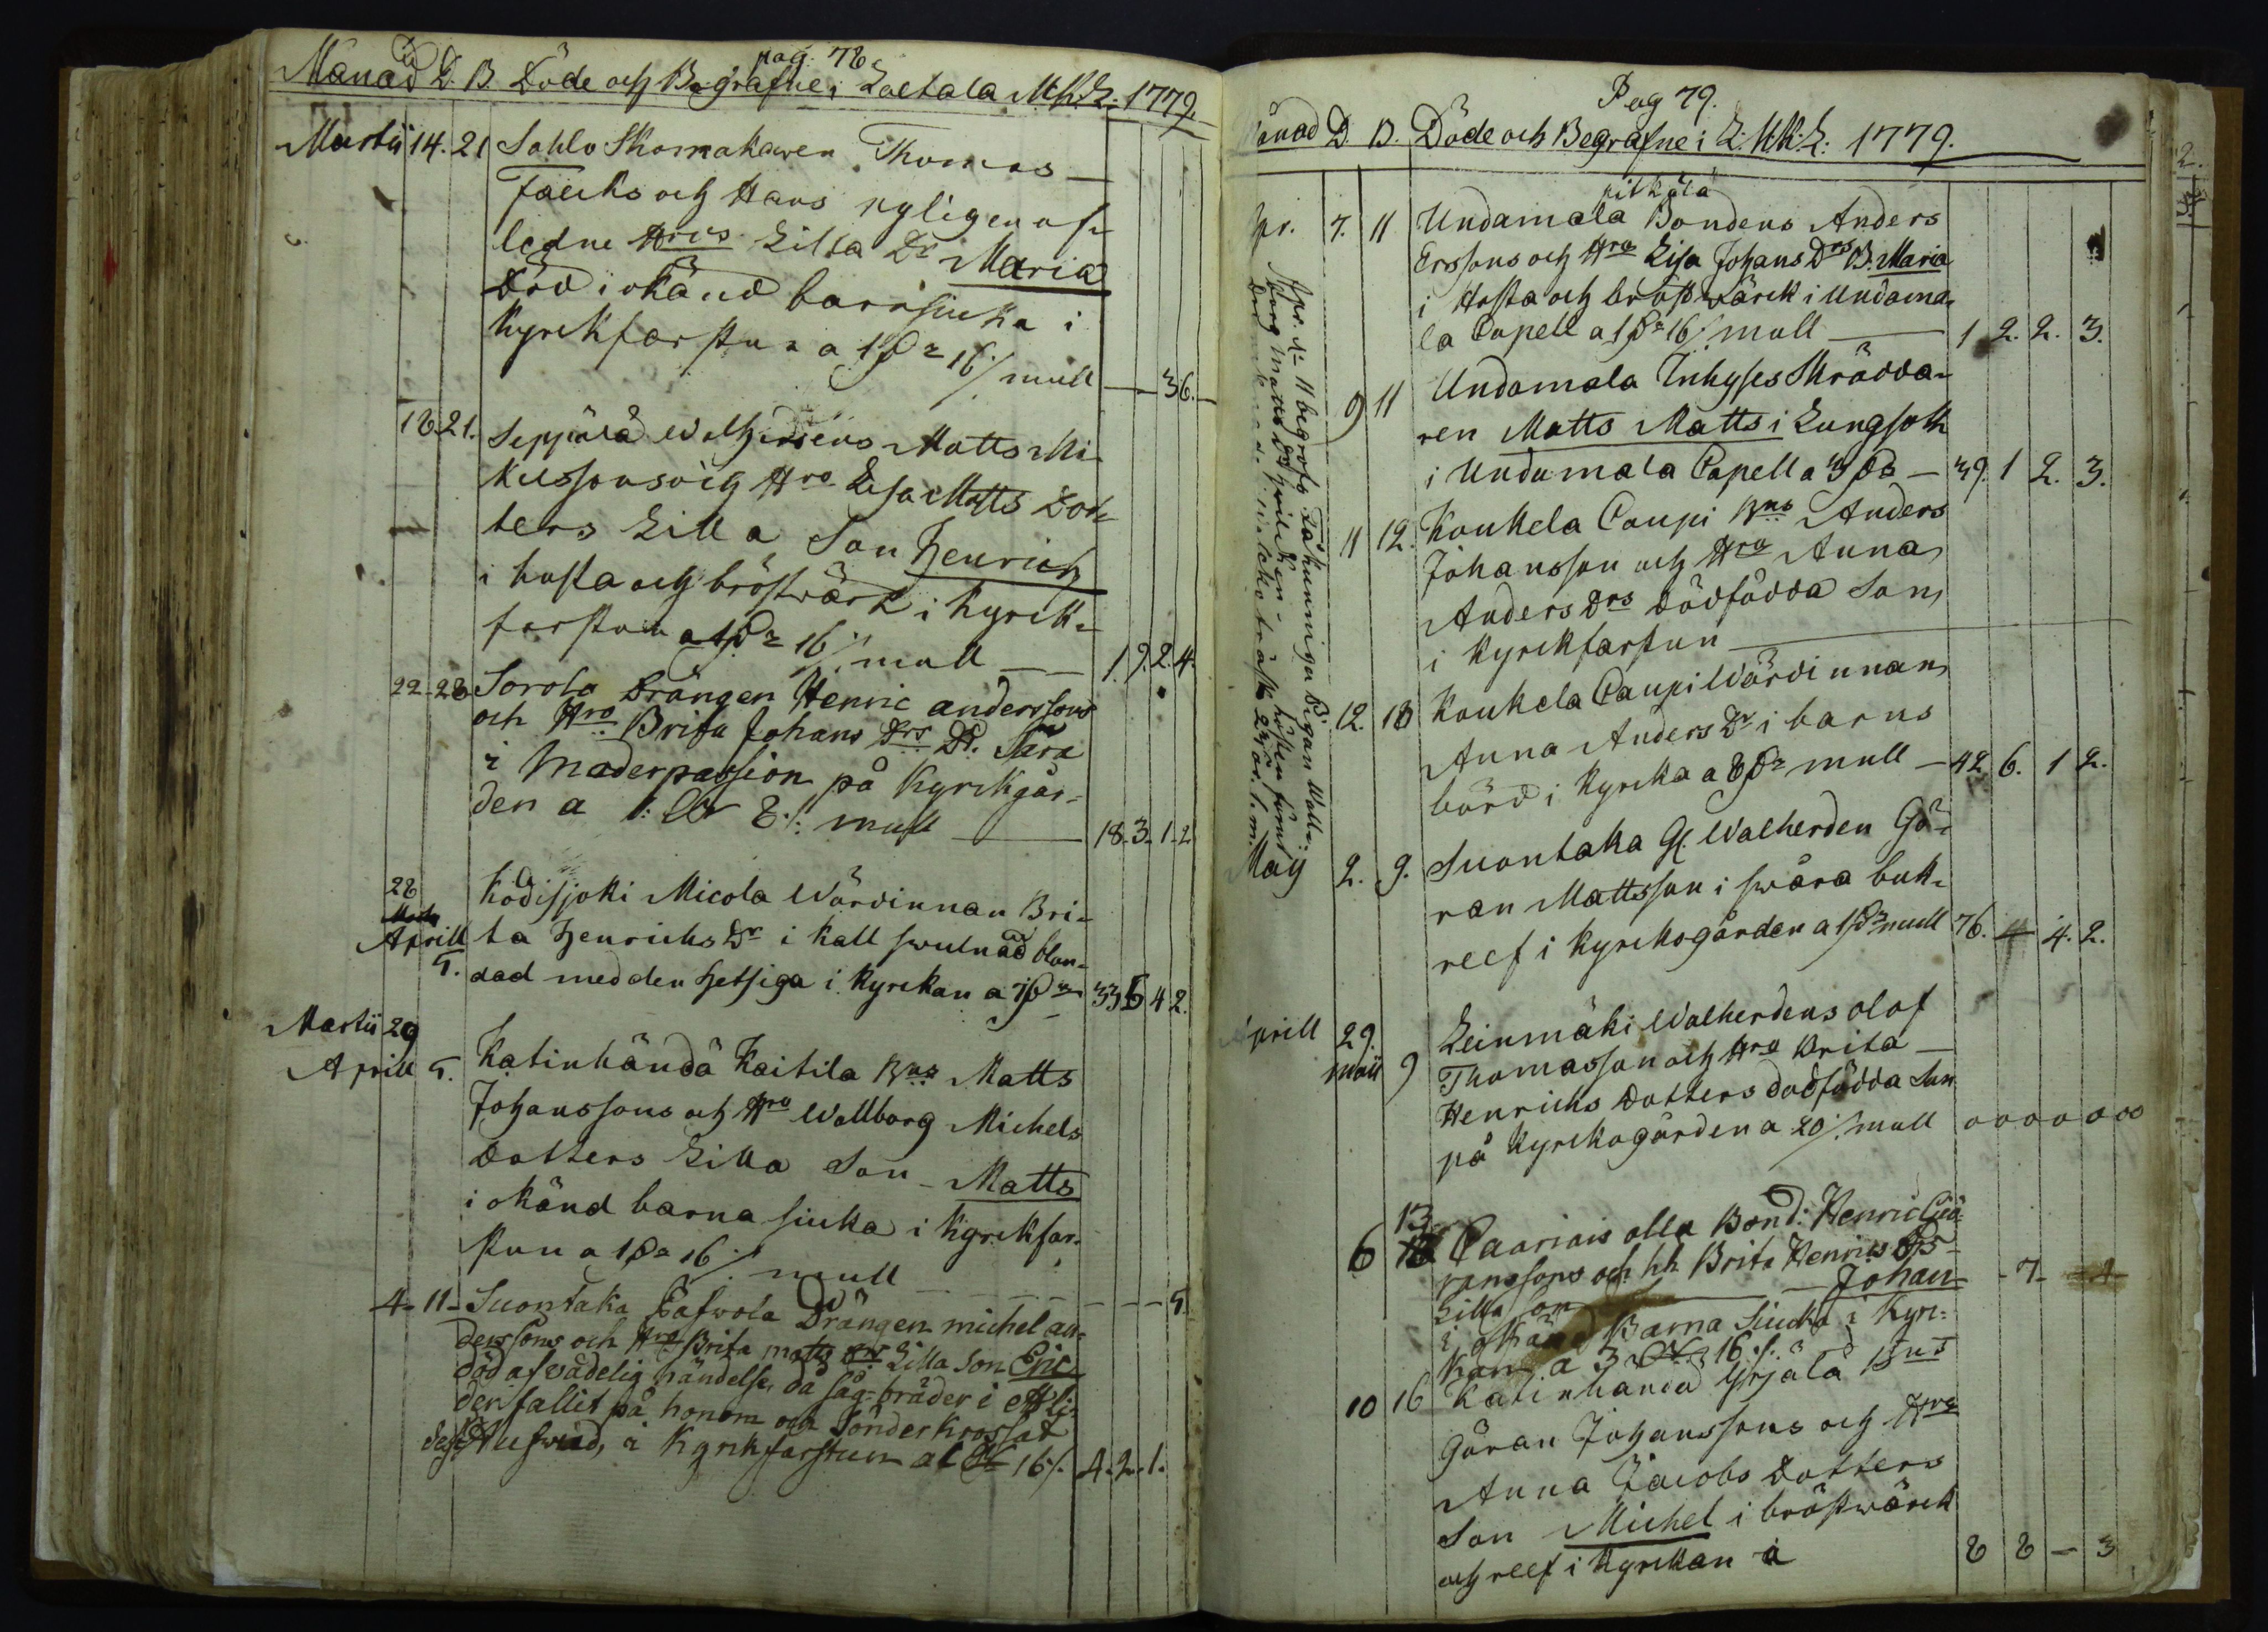 pag. 78.
Månad D. B. Döde och Begrafne i Loctala M.K.L. 1779.
Martii 14. 21 Sahlo Skomakaren Thomas
Falcks och Hans nyligen af-
ledne Hrus Lilla Dr Maria
död i okänd barnsiuka i
Kyrckfarstun a 1 Pr 16 / mull — 36. —
18. 21. Seppälä Walherdens Matts Mi-
kelssons och Hro Lisa Matts Dot-
ters Lilla Son Henrich
i hosta och bröstvärk i Kyrck-
farstun a 1 Pr 16 / mull — 1. 9. 2. 4.
22 - 28 Sorola Drängen Henric anderssons
och Hro Brita Johans Drs Dr. Sara
i Moderpassion på Kyrckgår-
den a 1: 8 /: mull — 18. 3. 1. 2
28 Kodisjoki Micola Wärdinnan Bri-
Aprill ta Henrichs Dr i kall swulnad blan-
5. dad med den hetsiga i Kyrckan a 33 5 4 2.
Martii 29
Aprill 5. Katinhändä Kaitila Bns Matts
Johanssons och Hro Wallborg Michels
Dotters Lilla Son Matts
i okänd barna siuka i Kyrckfar-
stun a 1 Pr 16 / mull — 5.
4 - 11 - Suontaka Drängen michel an-
derssons och Hro Brita matts Drs Lilla Son Eric
död af vådelig händelse, då såg-bräder i
den fallit på honom och sönderkrossat
dess Hufwud, i Kyrkfarstun a 1 16 /. 4. 2. 1.
Pag 79.
Månad D. B. Döde och Begrafne i L: M.K: L: 1779.
pitkälä
Apr. 7. 11 Undamala Bondens Anders
Erssons och Hro Lisa Johans Drs B. Maria
i Hosta och bröstwärck i Undama-
la Capell a 1 Pr 16 / mull — 1 2. 2. 3.
9 11 Undamala Inhyses Skrädda-
ren Matts Matts i Lungsoth
i Undamala Capell a 3 — 39. 1 2. 3.
11 12. Koukela Caupi Bns Anders
Johansson och Hro Anna
Anders Drs dödfödda Son
i Kyrckfarstun —
12. 18 Koukela Caupi Wärdinnan
Anna Anders Dr i barns
börd i Kyrcka a 8 Pr mull — 42 6. 1 2.
May 2. 9. Suontaka Gl. Walherden Gö-
ran Mattsson i swåra buk-
reef i Kyrckogården a 1 Pr mull 76. 4 4. 2.
Aprill 29.
Maii 9 Leinmäki Walherdens olof
Thomasson och Hro Brita
Henrichs Dotters dödfödda Son
på Kyrckogården a 20 /. mull 0 0 0 0 0 00
13
6 Caariais olla Bond: Henric Giö-
ranssons och hh Brita Henrics Drs
Lilla Son Johan - 7 -
i okänd Barna Siucka i Kyr-
kan a 3 16 /.
10 16 Katinhanda Yrjälä Bns
Göran Johanssons och Hro
Anna Jacobs Dotters
Son Michel i bröstwärck
och reef i Kyrckan a 8 8 — 3
Apr. d. 11 begrofs Pigan Wall-
borg Matts Dr